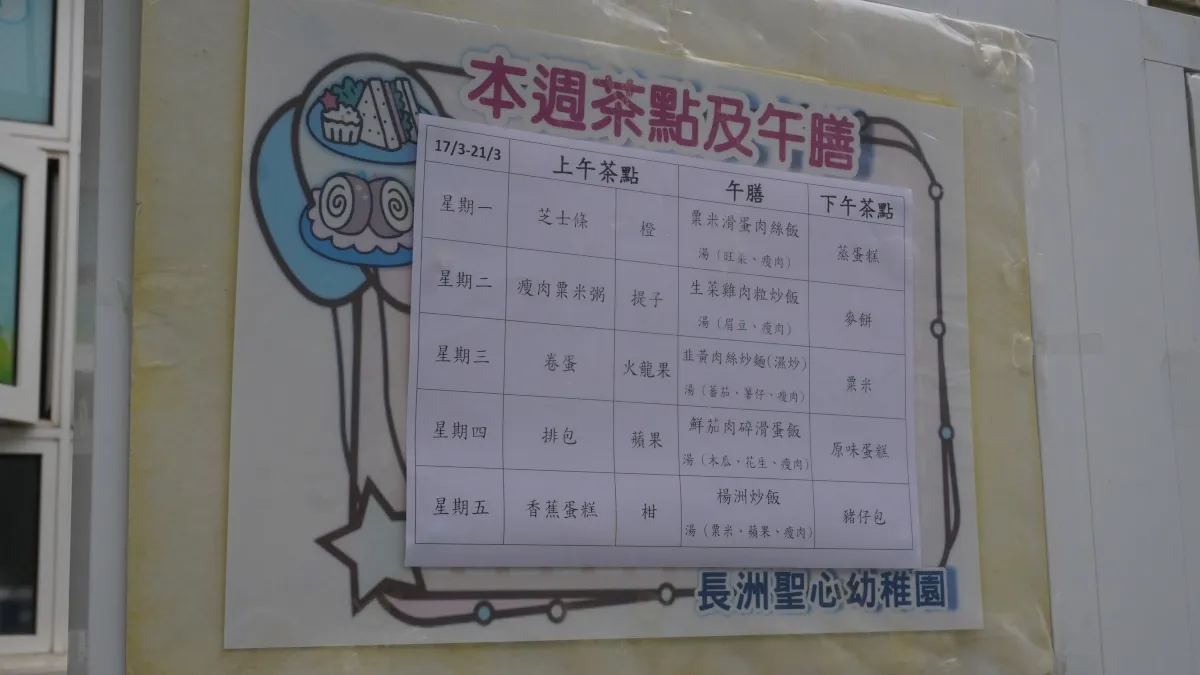 本週茶點及午膳
17/3-21/3 上午茶點 午膳 下午茶點
星期一 芝士條 橙 粟米滑蛋肉絲飯 蒸蛋糕
湯（旺菜、瘦肉）
星期二 瘦肉粟米粥 提子 生菜雞肉粒炒飯 麥餅
湯（眉豆、瘦肉）
星期三 卷蛋 火龍果 韭黃肉絲炒麵(濕炒) 粟米
湯（蕃茄、薯仔、瘦肉）
星期四 排包 蘋果 鮮茄肉碎滑蛋飯 原味蛋糕
湯（木瓜、花生、瘦肉）
星期五 香蕉蛋糕 柑 楊洲炒飯 豬仔包
湯（粟米、蘋果、瘦肉）
長洲聖心幼稚園